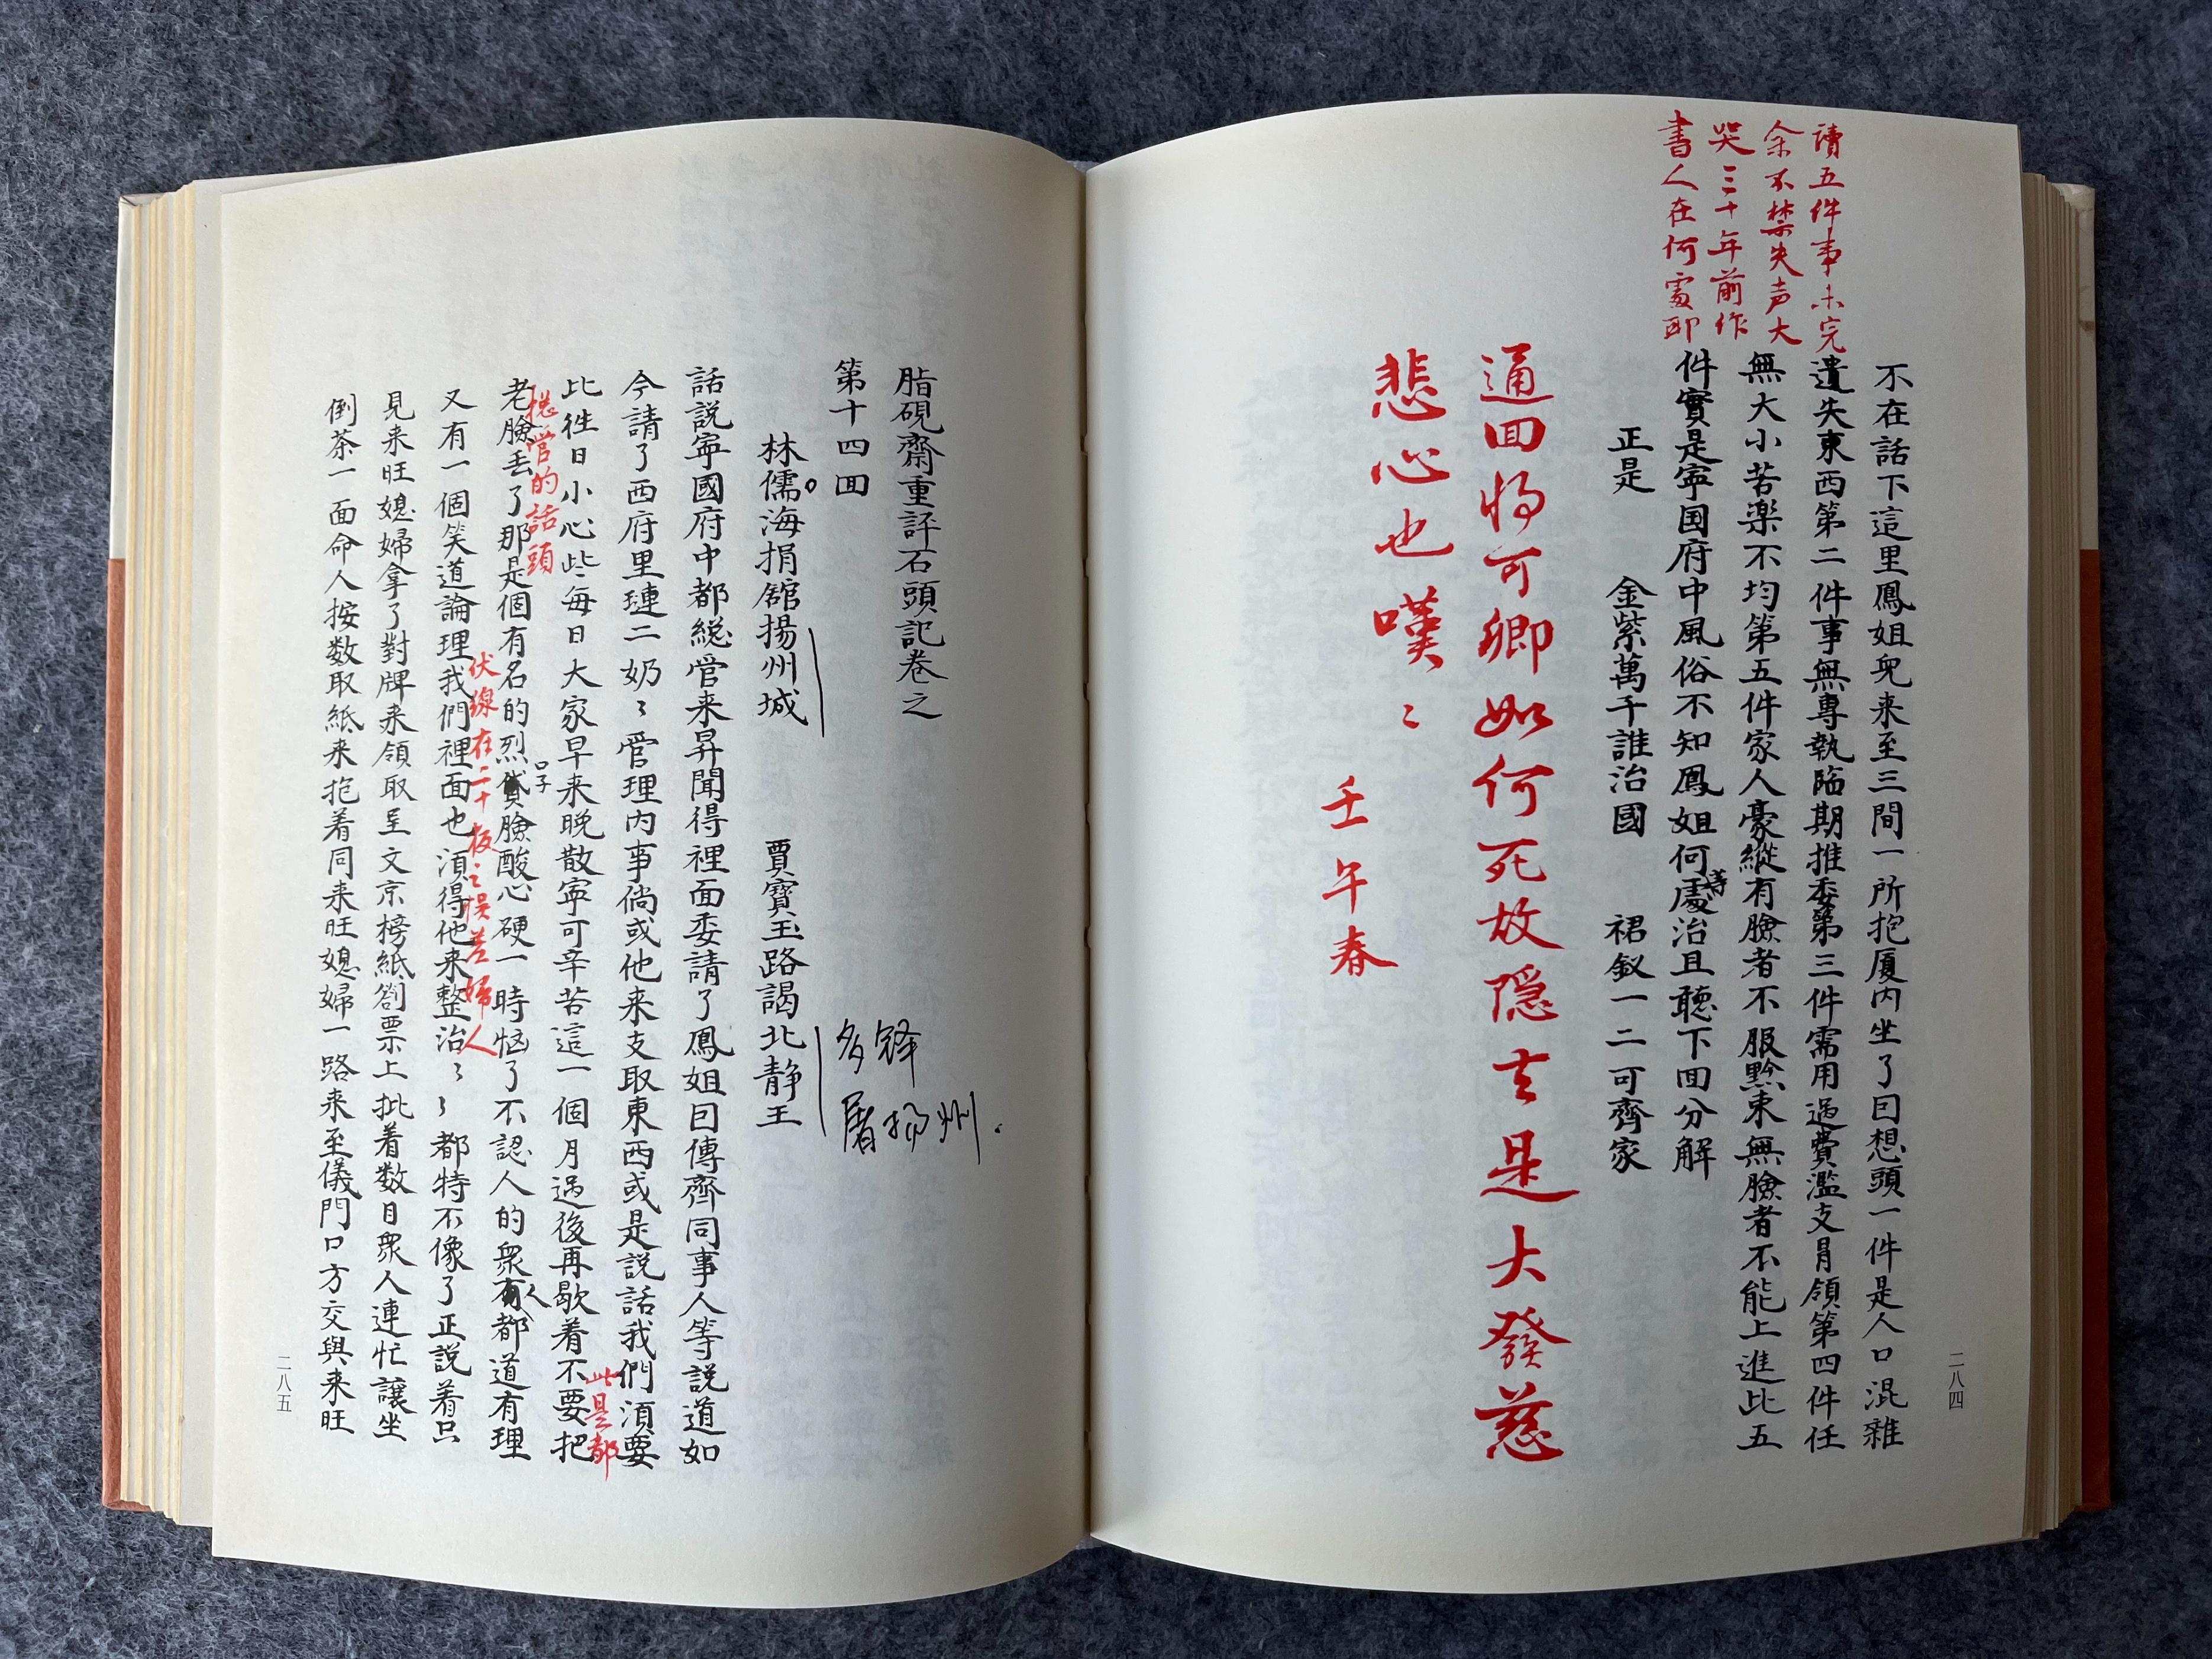 讀五件事未完
余不禁失声大
哭三十年前作
書人在何處耶
不在話下這里鳳姐兒来至三間一所抱厦内坐了因想頭一件是人口混雜
遺失東西第二件事無專執臨期推委第三件需用過費濫支冐領第四件任
無大小苦楽不均第五件家人豪縱有臉者不服黔束無臉者不能上進此五
件實是寧国府中風俗不知鳳姐何處治且聽下回分解
等
正是　金紫萬千誰治國　裙釵一二可齊家
通回将可卿如何死故隠去是大發慈
悲心也嘆〻
壬午春
二八四
脂硯齋重評石頭記卷之
第十四回
林儒海捐舘揚州城　賈寶玉路謁北靜王
多铎
屠扬州.
話説寧國府中都総管来昇聞得裡面委請了鳳姐因傳齊同事人等説道如
今請了西府里璉二奶〻管理内事倘或他来支取東西或是説話我們湏要
此是都
比徃日小心些每日大家早来晚散寧可辛苦這一個月過後再歇着不要把
総管的話頭
老臉丢了那是個有名的烈貨臉酸心硬一時惱了不認人的衆都道有理
口子
人
伏線在二十板〻悞差婦人
又有一個笑道論理我們裡面也湏得他来整治〻〻都特不像了正説着只
見来旺媳婦拿了對牌来領取呈文京榜紙劄票上批着数目衆人連忙讓坐
倒茶一面命人按数取紙来抱着同来旺媳婦一路来至儀門口方交與来旺
二八五